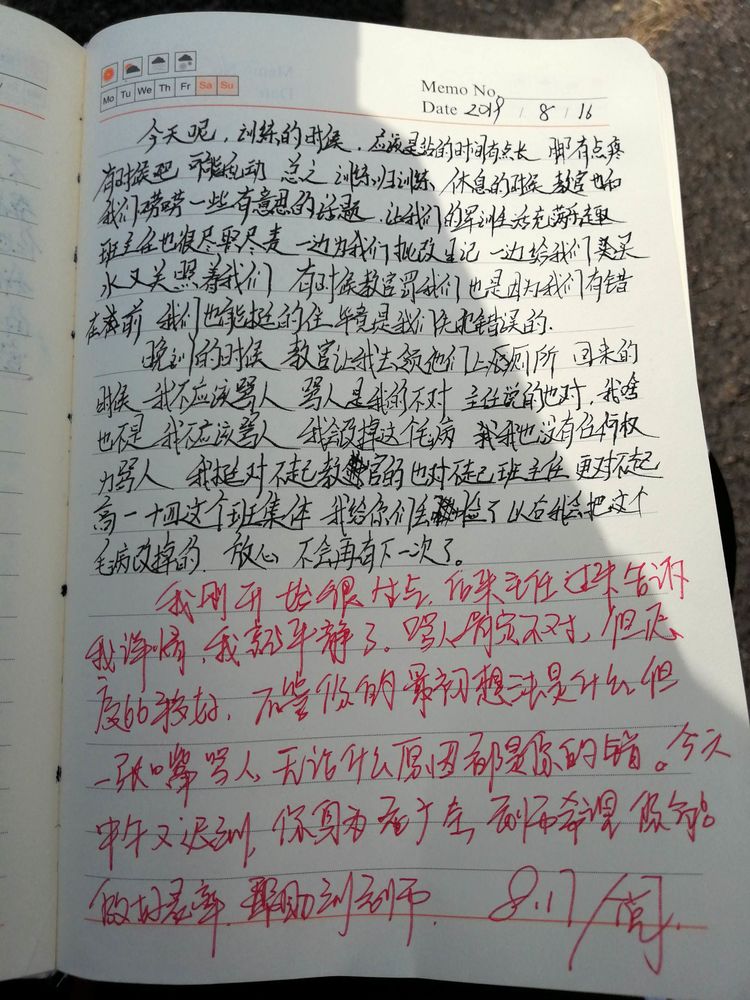 Mo Tu We Th Fr Sa Su
Memo No.
Date 2019 / 8 / 16
今天呢，训练的时候，应该是站的时间有点长 脚有点疼
有时候吧 可能乱动 总之 训练归训练 休息的时候 教官也和
我们唠唠一些有意思的话题 让我们的军训生活充满乐趣
班主任也很尽职尽责 一边为我们批改日记 一边给我们买
水又关照着我们 有时候教官罚我们也是因为我们有错
在前 我们也能挺的住 毕竟是我们犯错误的.
晚训的时候 教官让我去领他们上厕所 回来的
时候 我不应该骂人 骂人是我的不对 主任说的也对 我啥
也不是 我不应该骂人 我会改掉这个毛病 我我也没有任何权
力骂人 我挺对不起教官的也对不起班主任 更对不起
高一十四这个班集体 我给你们丢脸了 以后我会把这个
毛病改掉的. 放心 不会再有下一次了。
我刚开始很生气, 后来主任过来告诉
我详情, 我就平静了。骂人肯定不对, 但态
度还好, 不管你的最初想法是什么 但
一张口骂人, 无论什么原因都是你的错。今天
中午又迟到, 你身为 老师希望你能
做好表率, 帮助到老师. 8.17/